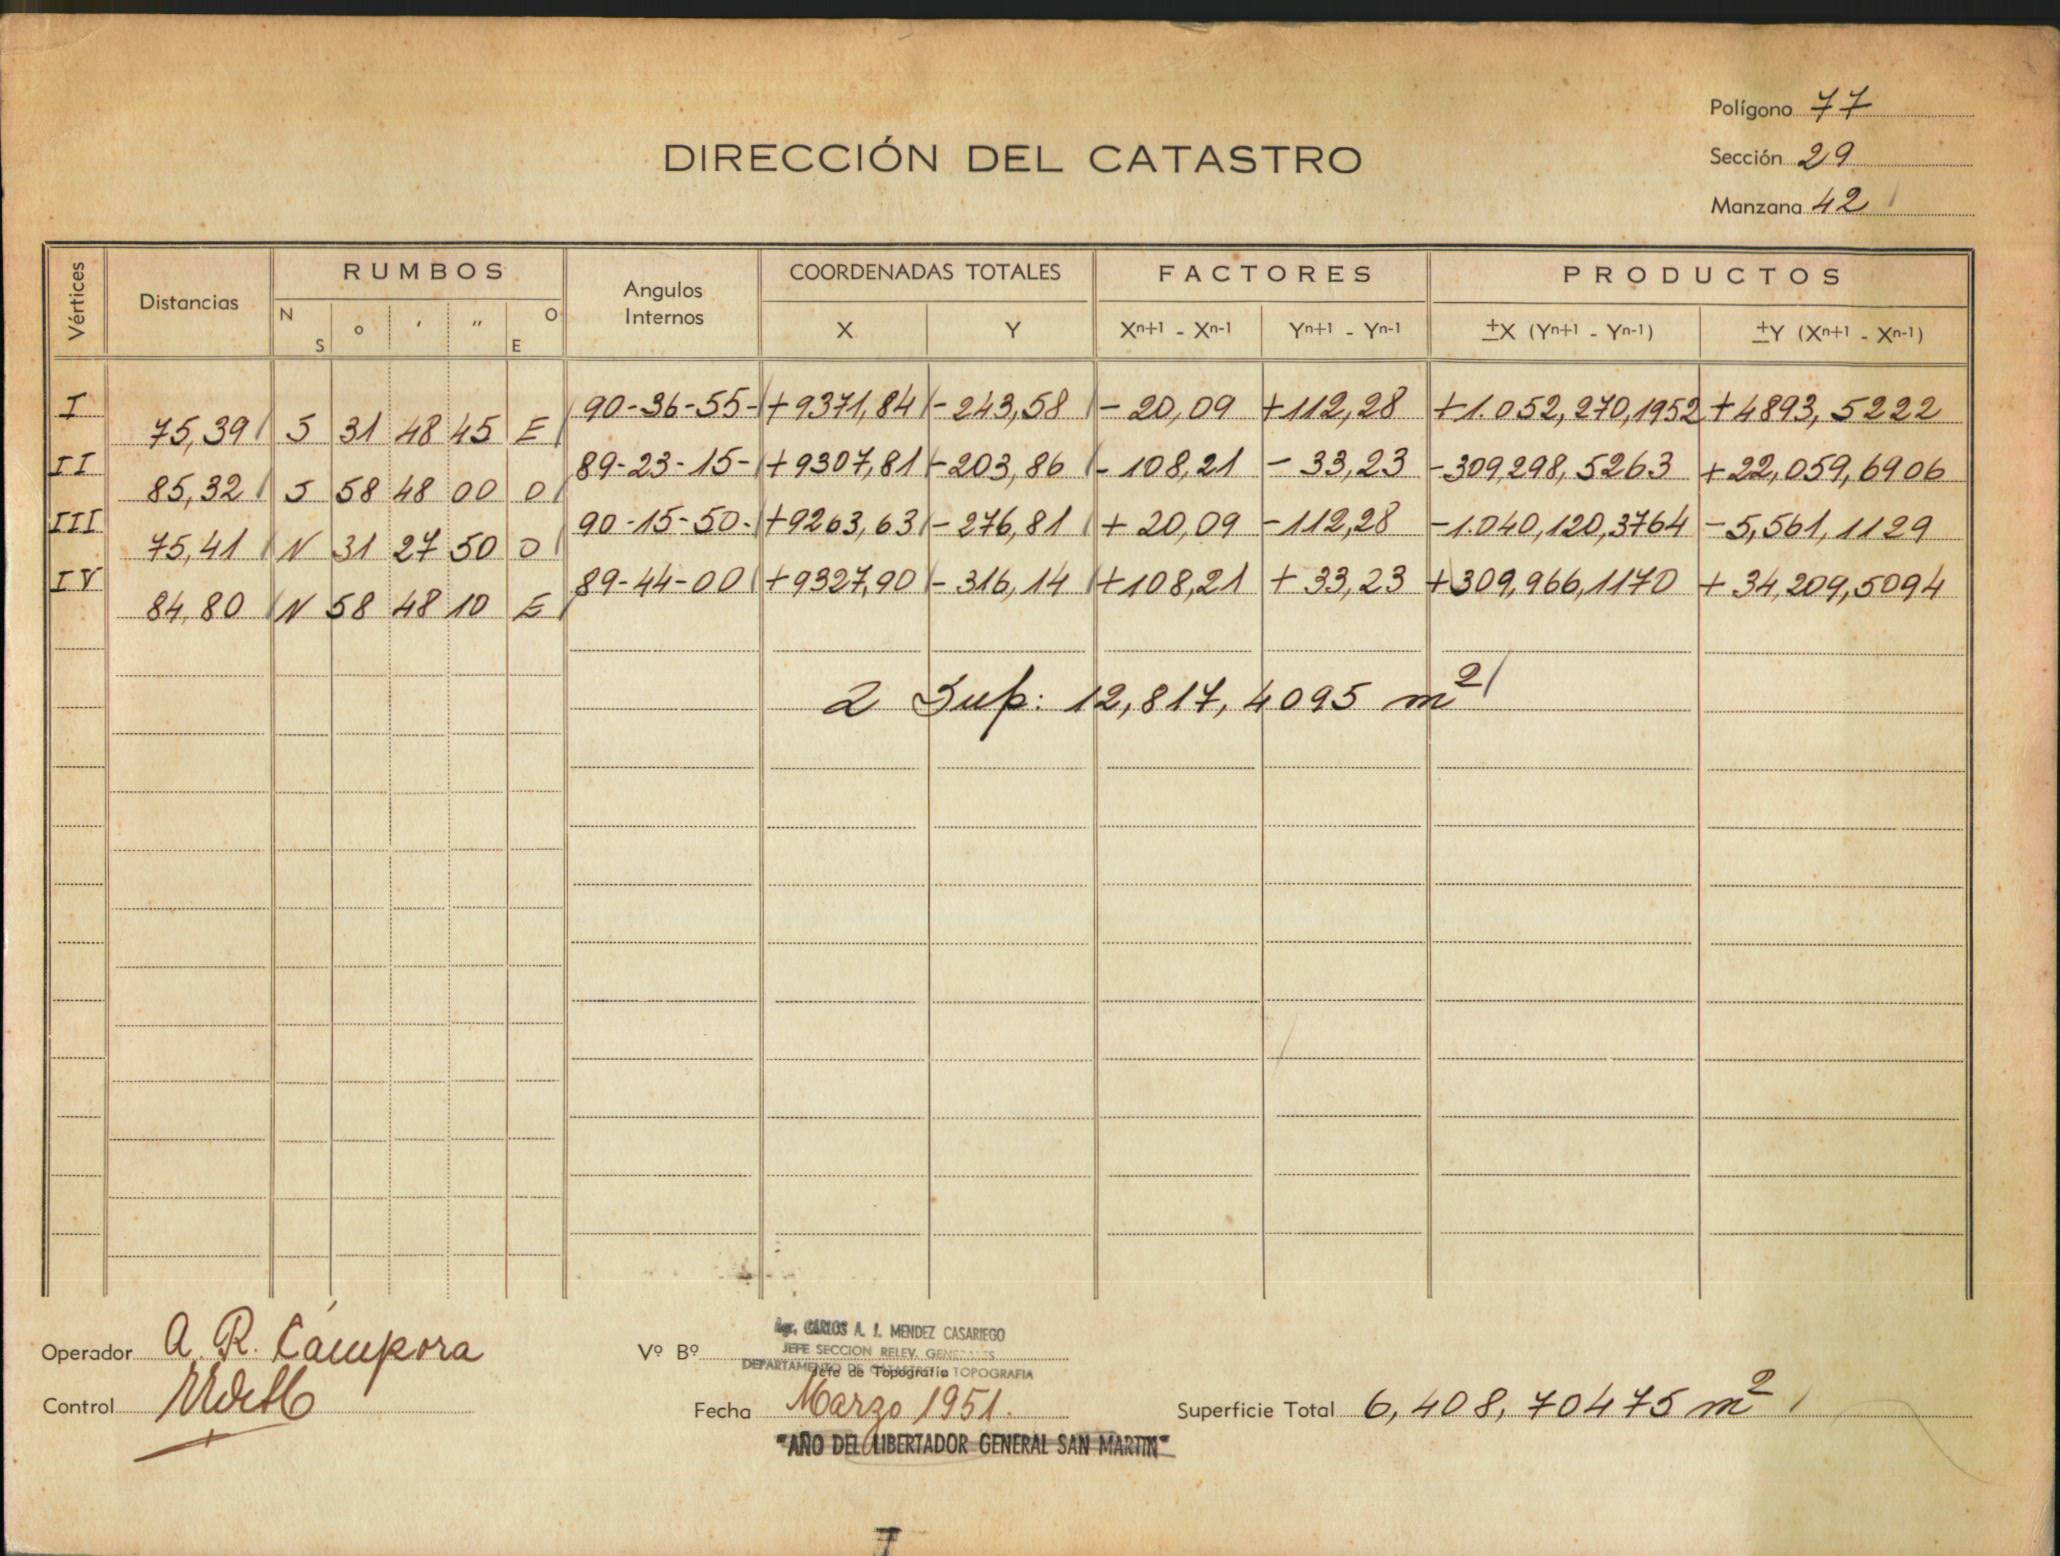 Polígono 77
DIRECCIÓN DEL CATASTRO
Sección 29
Manzana 42
Vértices Distancias RUMBOS Angulos Internos COORDENADAS TOTALES FACTORES PRODUCTOS
N S ° ' " O E X Y Xn+1 - Xn-1 Yn+1 - Yn-1 ±X (Yn+1 - Yn-1) ±Y (Xn+1 - Xn-1)
I 90-36-55- +9371,84 -243,58 -20,09 +112,28 +1.052,270,1952 +4893,5222
75,39 S 31 48 45 E
II 89-23-15- +9307,81 -203,86 -108,21 -33,23 -309,298,5263 +22,059,6906
85,32 S 58 48 00 O
III 90-15-50- +9263,63 -276,81 +20,09 -112,28 -1.040,120,3764 -5,561,1129
75,41 N 31 27 50 O
IV 89-44-00 +9327,90 -316,14 +108,21 +33,23 +309,966,1170 +34,209,5094
84,80 N 58 48 10 E
2 Sup: 12,817,4095 m²
Operador A. R. Cámpora
Vº Bº
CARLOS A. J. MENDEZ CASARIEGO
JEFE SECCION RELEV. GENERALES
DEPARTAMENTO DE CATASTRO TOPOGRAFIA
Jefe de Topografía
Control
Fecha Marzo 1951.
Superficie Total 6,408,70475 m²
"AÑO DEL LIBERTADOR GENERAL SAN MARTIN"